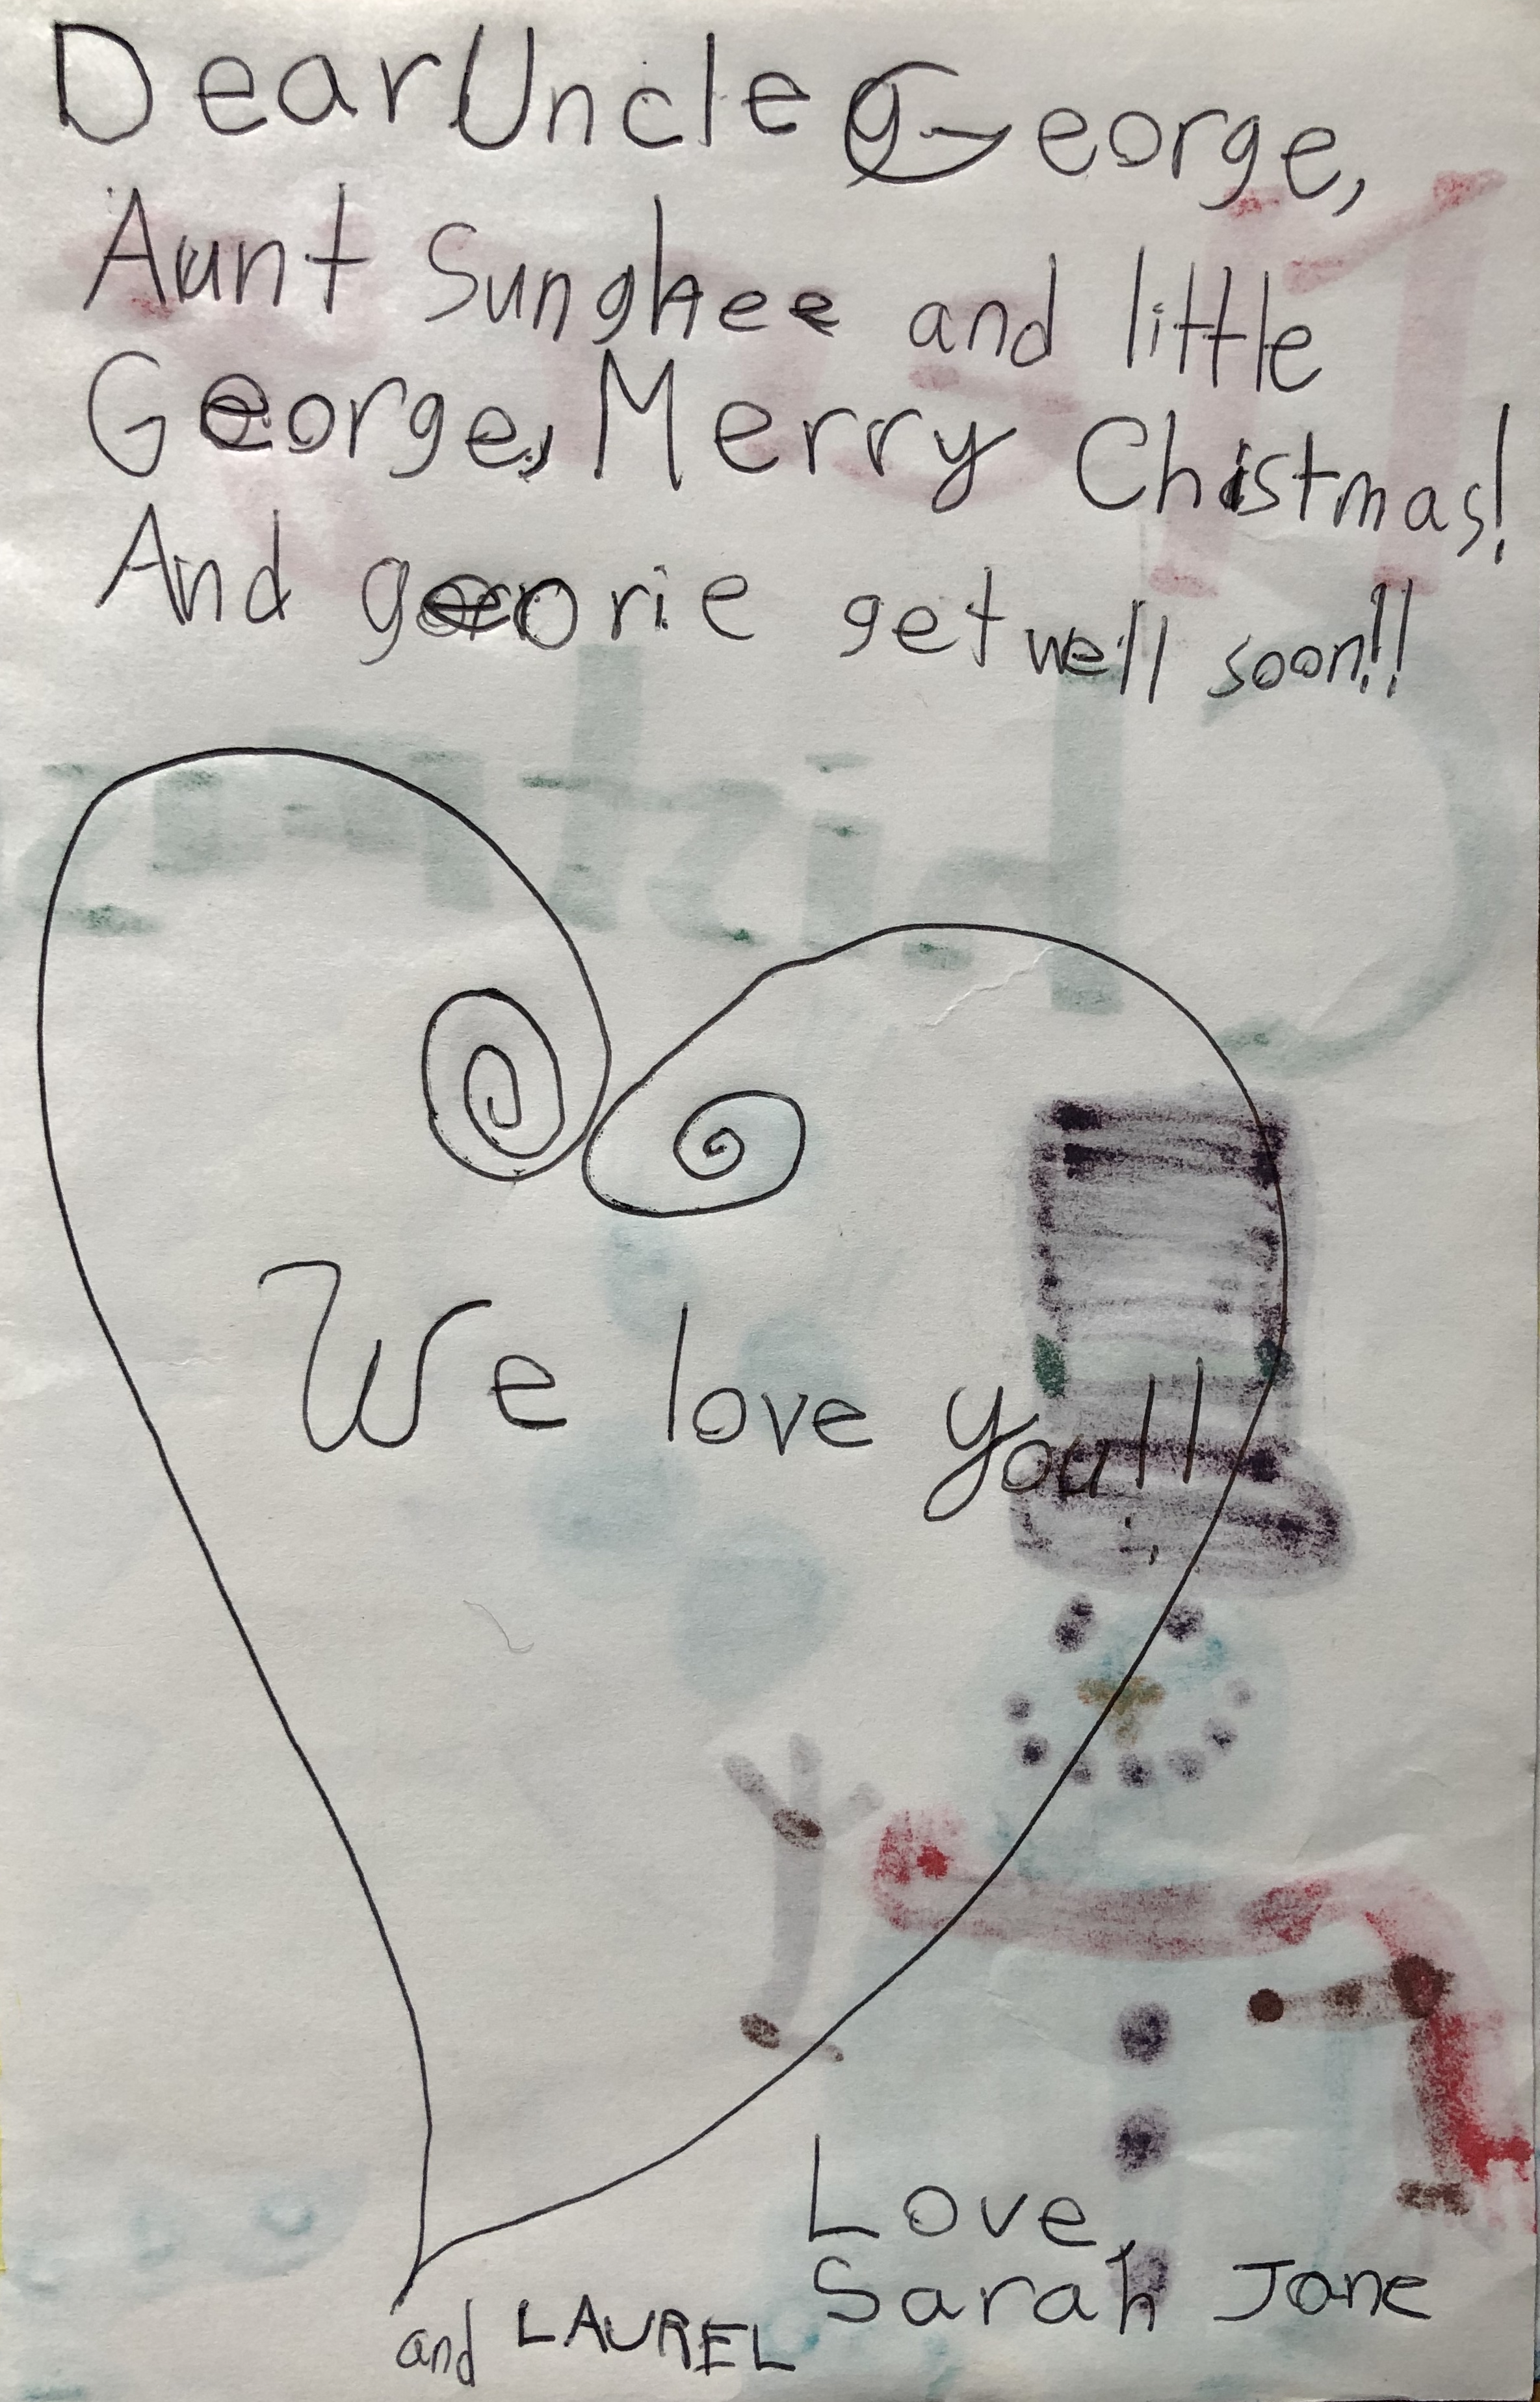 Dear Uncle George,
Aunt Sunghee and little
George, Merry Chistmas!
And georie get well soon!!
We love you!!
Love,
Sarah Jane
and LAUREL